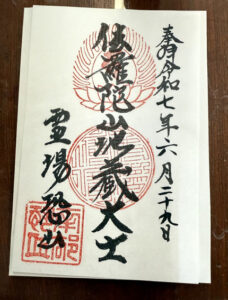 奉拝令和七年六月二十九日
伽羅陀山地蔵大士
霊場恐山